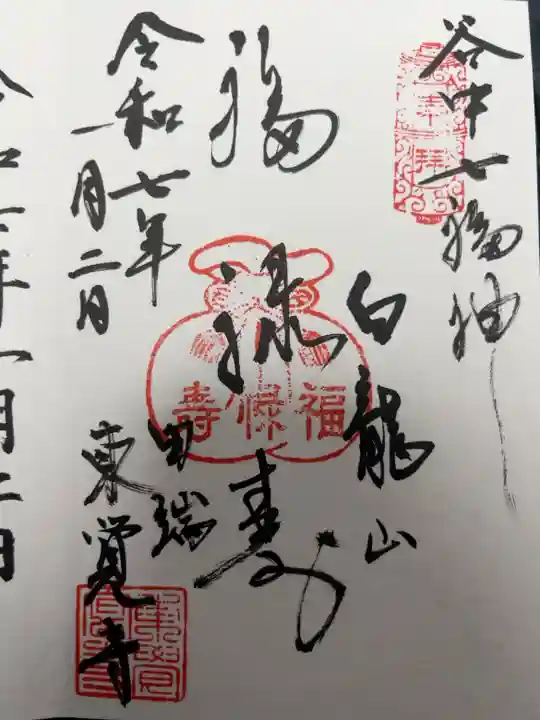 谷中七福神
奉拝
白龍山
福禄寿
福禄寿
田端
東覚寺
令和七年
一月二日
令和七年一月二日